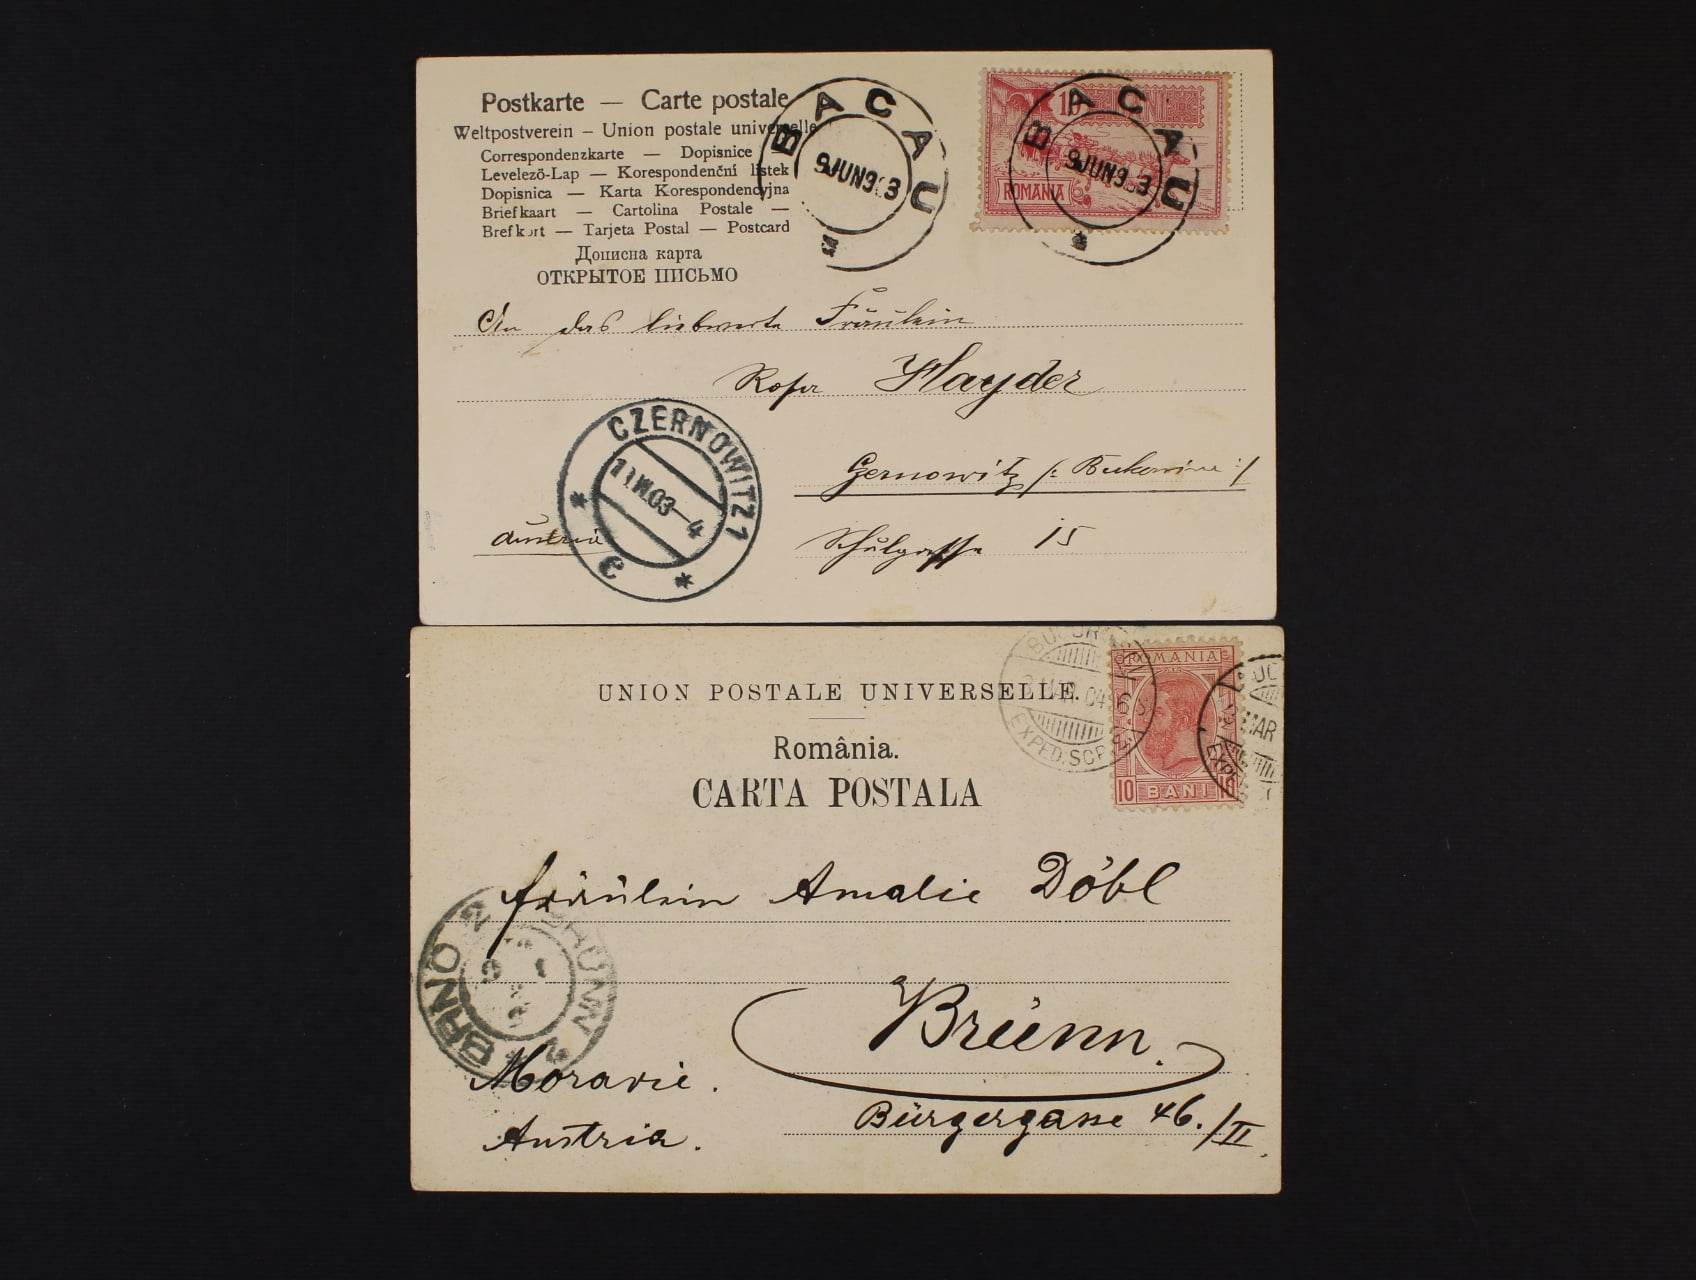 Postkarte — Carte postale
Weltpostverein – Union postale universelle
Correspondenzkarte — Dopisnice
Levelező-Lap — Korespondenční lístek
Dopisnica — Karta Korespondencyjna
Briefkaart — Cartolina Postale —
Brefkort — Tarjeta Postal — Postcard
Дописна карта
ОТКРЫТОЕ ПИСЬМО
BACAU
9 JUN 903
BACAU
9 JUN 903
10
ROMANIA
An das liebwerte Fräulein
Rosa Hayder
Czernowitz /: Bukowina :/
Austria
Schulgasse 15
CZERNOWITZ 1
11 VI 03—4
UNION POSTALE UNIVERSELLE.
România.
CARTA POSTALA
ROMANIA
10 BANI 10
EXPED. SCR
MAR
Fräulein Amalie Döbl
Brünn.
Moravie.
Bürgergasse 46./II.
Austria.
BRNO 2
BRÜNN 2